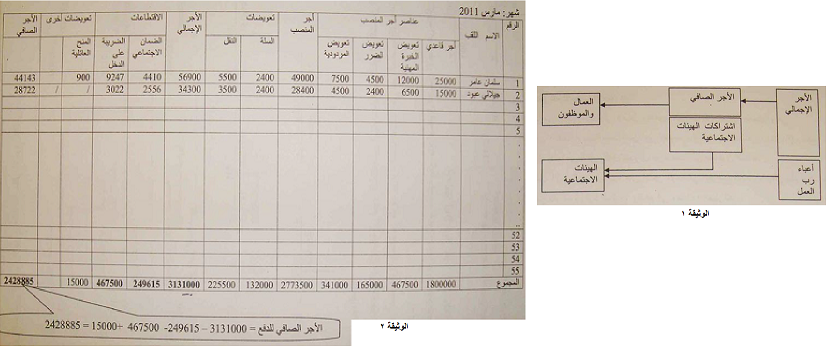 شهر: مارس 2011
الرقم
الاسم اللقب
عناصر أجر المنصب
أجر المنصب
تعويضات
الأجر الإجمالي
الاقتطاعات
تعويضات أخرى
الأجر الصافي
أجر قاعدي
تعويض الخبرة المهنية
تعويض الضرر
تعويض المردودية
السلة
النقل
الضمان الاجتماعي
الضريبة على الدخل
المنح العائلية
1 سلمان عامر 25000 12000 4500 7500 49000 2400 5500 56900 4410 9247 900 44143
2 جيلالي عبود 15000 6500 2400 4500 28400 2400 3500 34300 2556 3022 / / 28722
3
4
5
52
53
54
55
المجموع 1800000 467500 165000 341000 2773500 132000 225500 3131000 249615 467500 15000 2428885
الأجر الصافي للدفع = 3131000 – 249615- 467500 +15000 = 2428885
الوثيقة ٢
الأجر الإجمالي
الأجر الصافي
العمال والموظفون
اشتراكات الهيئات الاجتماعية
الهيئات الاجتماعية
أعباء رب العمل
الوثيقة ١